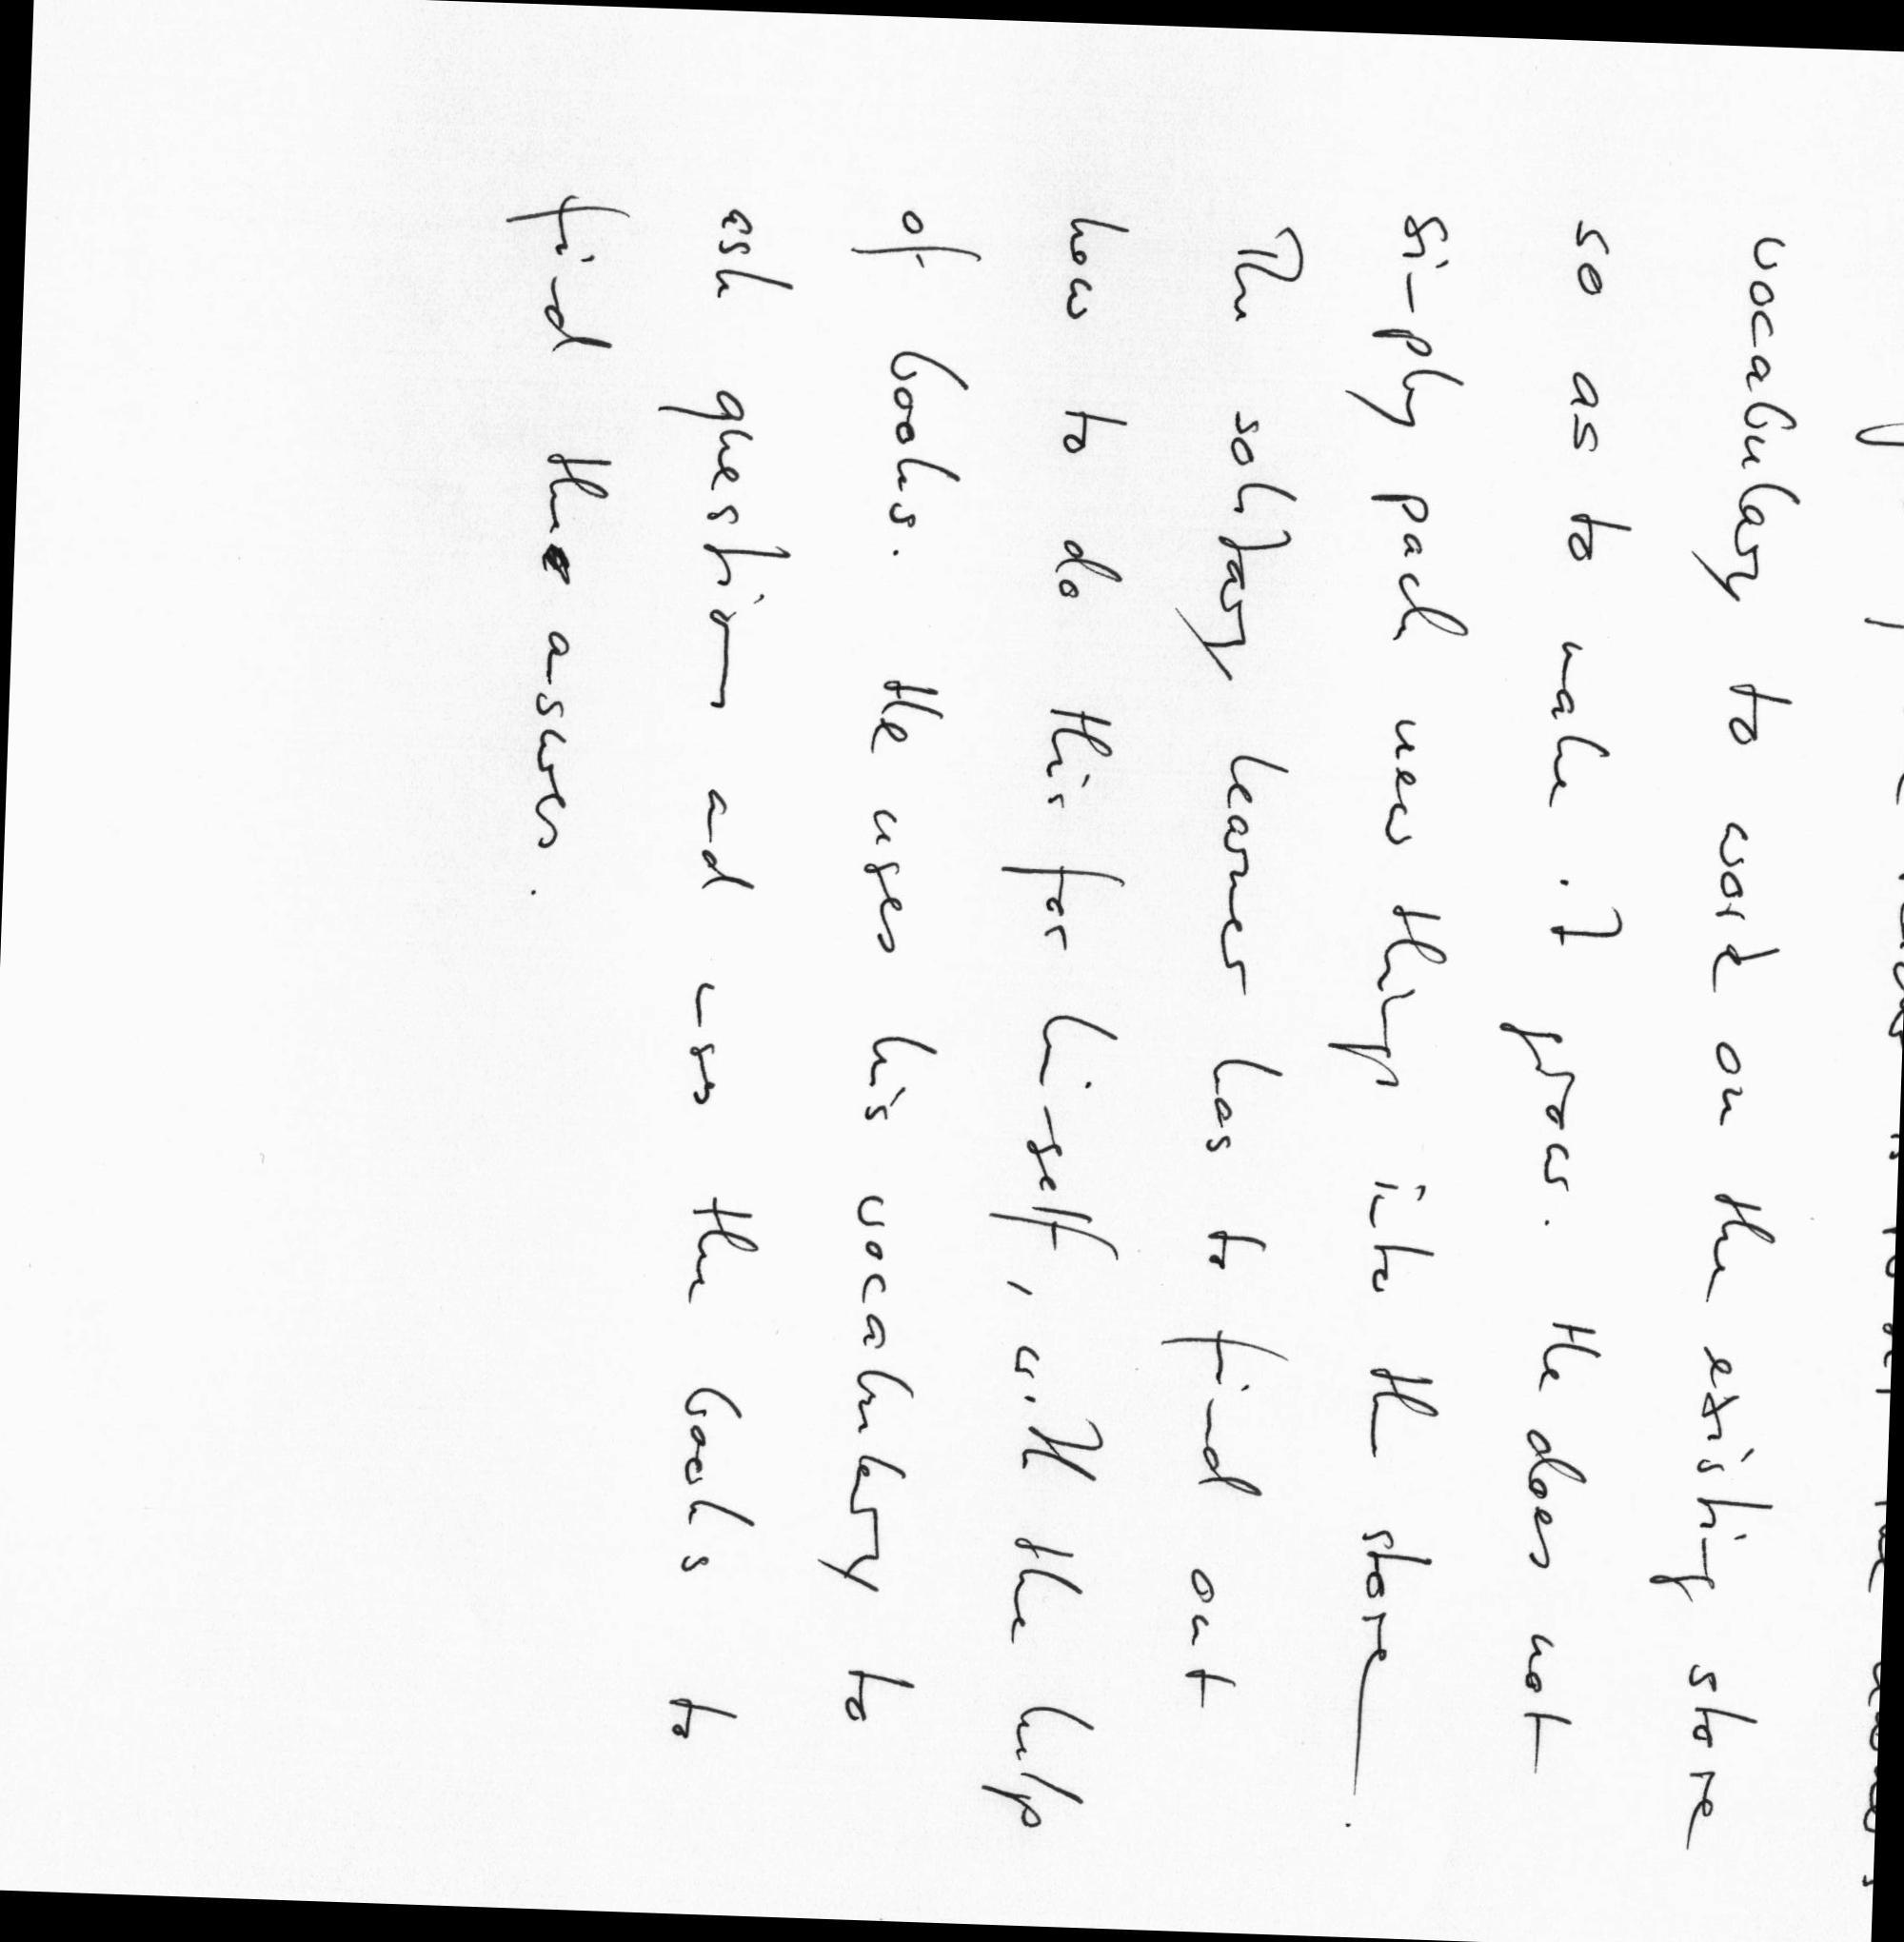 vocabulary to work on the existing store
so as to make it grow. He does not
simply pack new things into the store.
The solitary learner has to find out
how to do this for himself, with the help
of books. He uses his vocabulary to
ask question and uses the books to
find the answers.